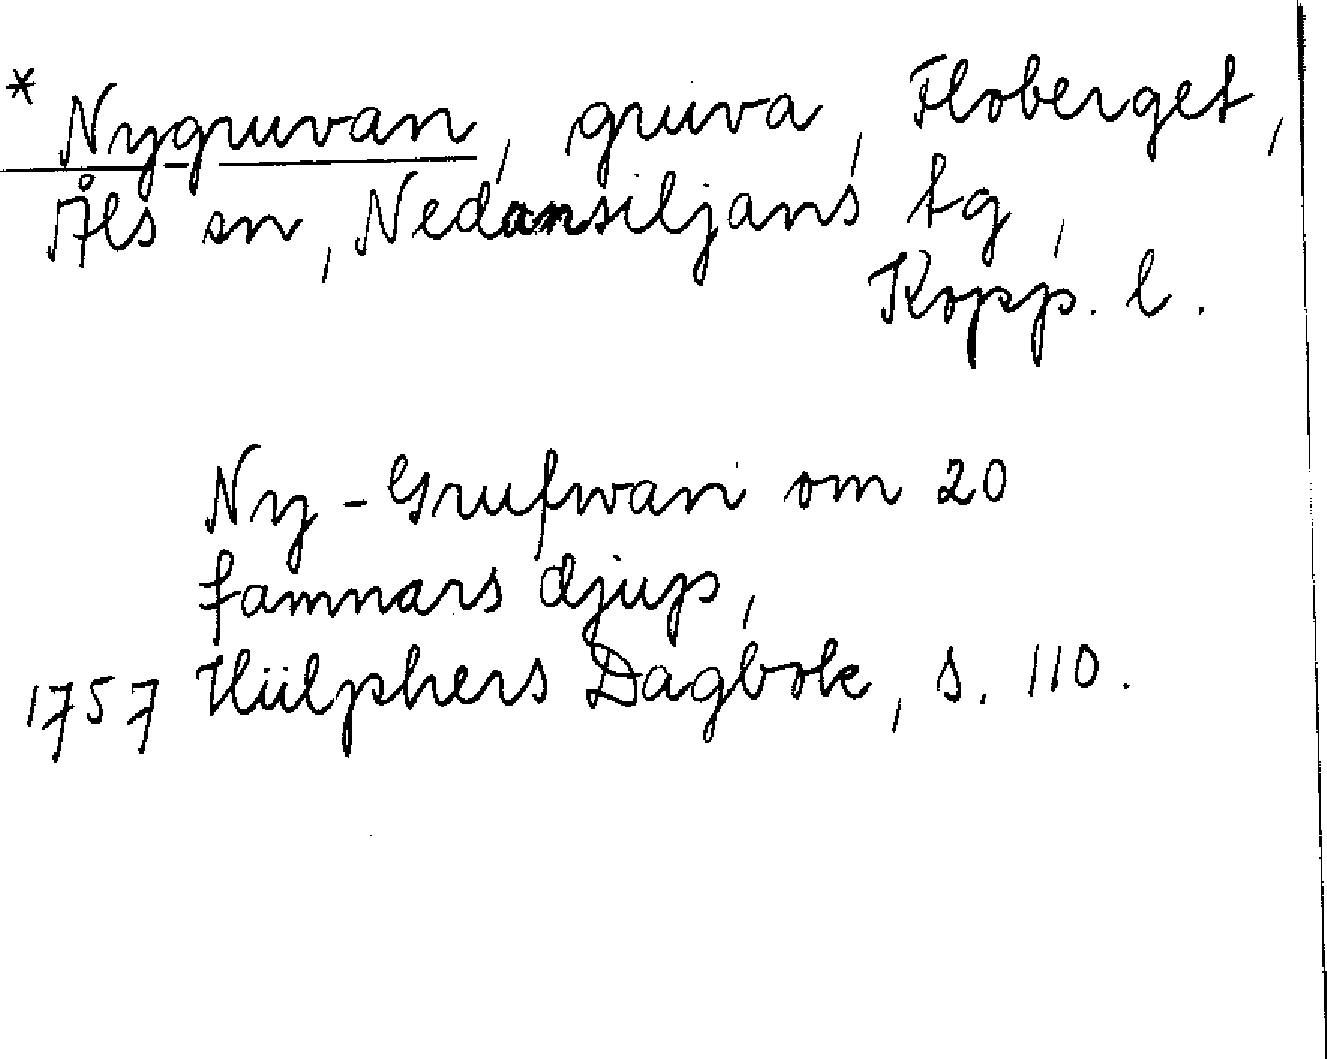 * Nygruvan, gruva, Floberget,
Åls sn, Nedansiljans tg,
Kopp. l.
Ny-Grufwan om 20
famnars djup,
1757 Hülphers Dagbok, s. 110.